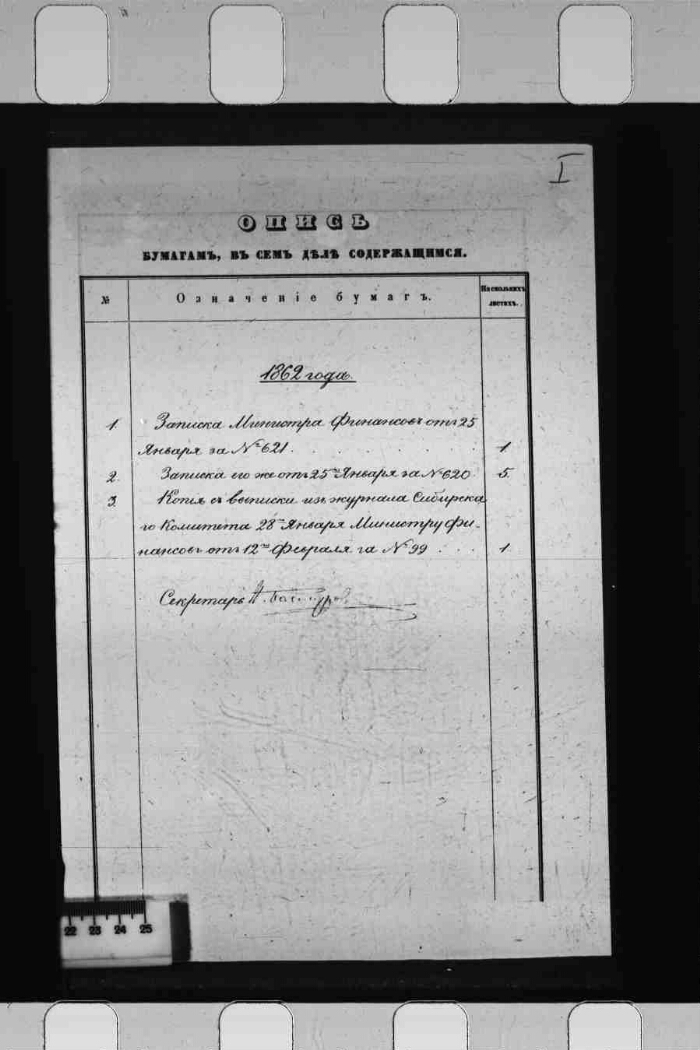 I
ОПИСЬ
БУМАГАМЪ, ВЪ СЕМЪ ДѢЛѢ СОДЕРЖАЩИМСЯ.
№ Означеніе бумагъ. На сколькихъ
листахъ.
1862 года.
1. Записка Министра Финансовъ отъ 25
Января за № 621. 1
2. Записка его же отъ 25го Января за № 620. 5.
3. Копія съ выписки изъ журнала Сибирска
го Комитета 28го Января Министру Фи-
нансовъ отъ 12го Февраля за № 99 1
Секретарь
22 23 24 25